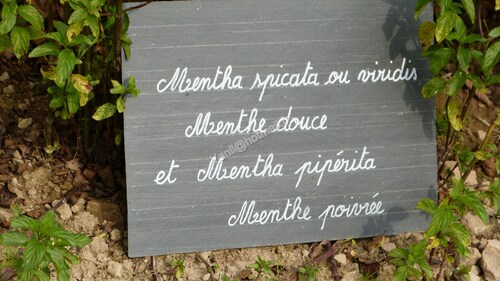 Mentha spicata ou viridis
Menthe douce
et Mentha pipérita
Menthe poivrée